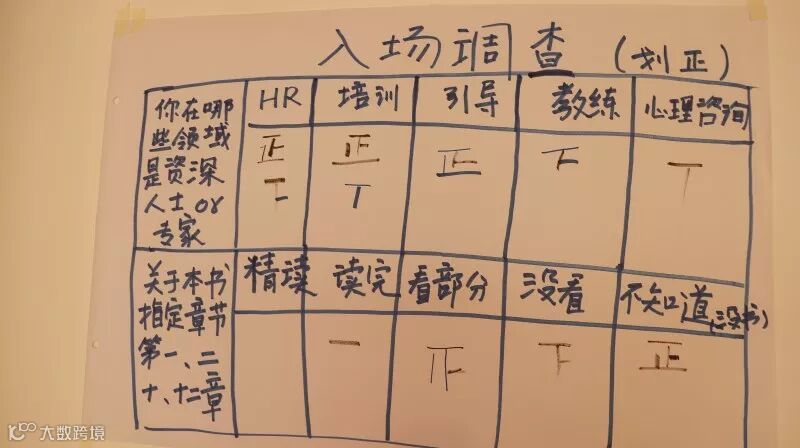 入场调查 (划正)
你在哪些领域是资深人士or专家
HR 培训 引导 教练 心理咨询
正 正 正 下 丅
丅
关于本书指定章节第一、二十、十二章
精读 读完 看部分 没看 不知道(没书)
一 下 正